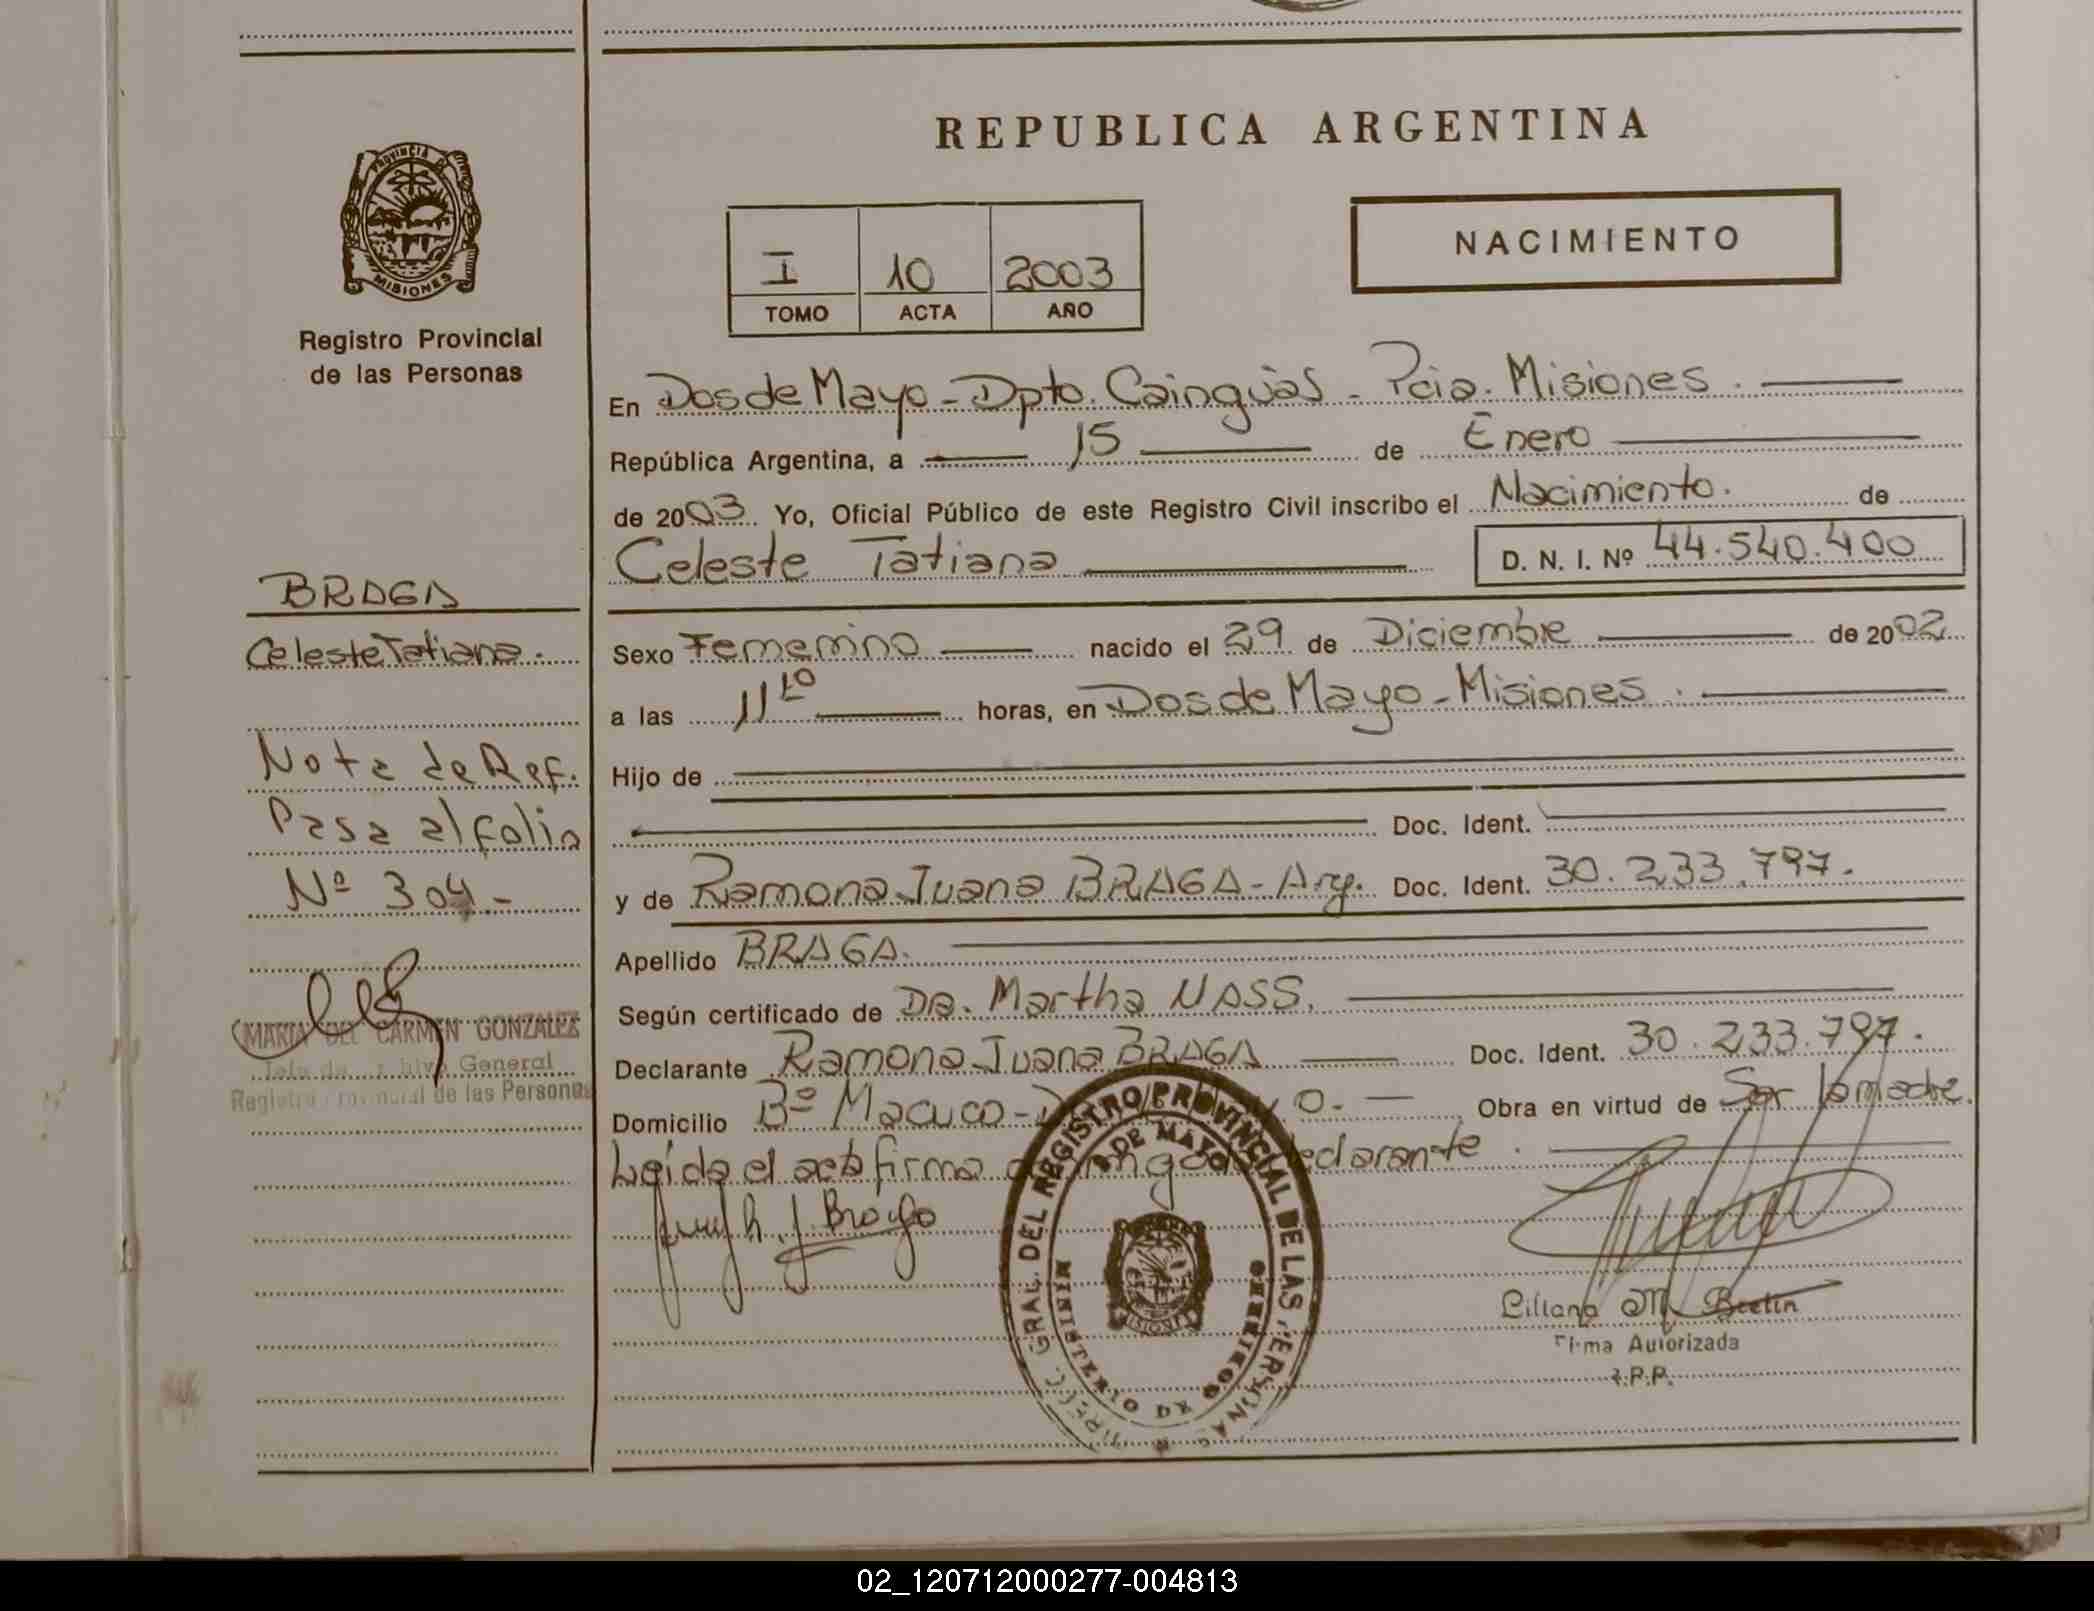 REPUBLICA ARGENTINA
PROVINCIA DE
MISIONES
Registro Provincial
de las Personas
I 10 2003
TOMO ACTA AÑO
NACIMIENTO
En Dos de Mayo - Dpto. Cainguás - Pcia. Misiones.
República Argentina, a 15 de Enero
de 2003. Yo, Oficial Público de este Registro Civil inscribo el Nacimiento. de
Celeste Tatiana D. N. I. Nº 44.540.400
BRAGA
Celeste Tatiana.
Nota de Ref.
Pasa al folio
Nº 304.-
MARIA DEL CARMEN GONZALEZ
General
de las Personas
Sexo Femenino nacido el 29 de Diciembre de 2002
a las 11 10 horas, en Dos de Mayo - Misiones.
Hijo de
Doc. Ident.
y de Ramona Juana BRAGA - Arg. Doc. Ident. 30.233.797.
Apellido BRAGA.
Según certificado de Da. Martha NASS.
Declarante Ramona Juana BRAGA Doc. Ident. 30.233.797.
Domicilio Bº Macuco - Obra en virtud de Ser la madre.
Leída el acta firma declarante.
J. Braga
GRAL. DEL REGISTRO PROVINCIAL DE LAS PERSONAS
DE MAYO
MINISTERIO DE GOBIERNO
MISIONES
Liliana M. Bretin
Firma Autorizada
R.P.P.
02_120712000277-004813